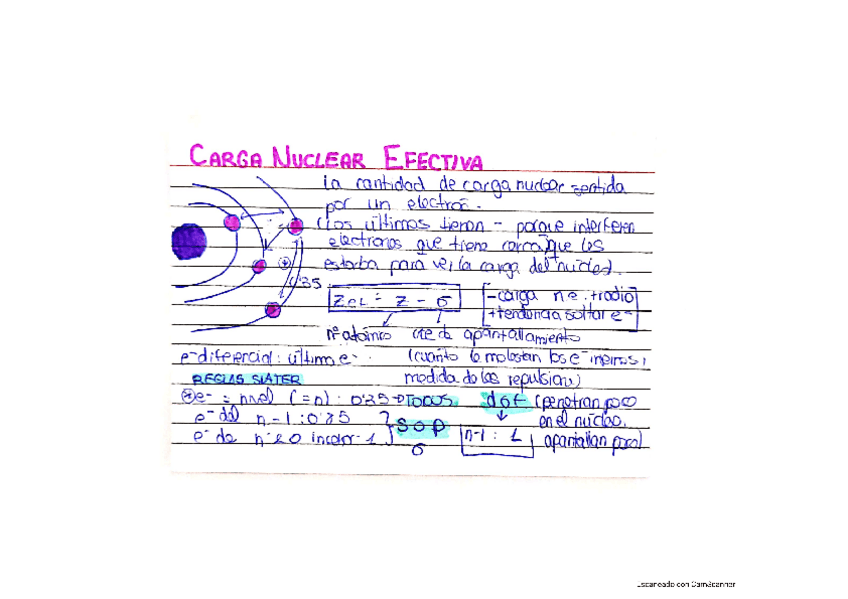 CARGA NUCLEAR EFECTIVA
la cantidad de carga nuclear sentida
por un electrón.
(los últimos tienen - porque interfieren
electrones que tiene cerca, que les
estorba para ver la carga del núcleo).
0'35
Zef = Z - σ
-carga n.e. +radio
+tendencia soltar e-
nº atómico cte de apantallamiento
e- diferencial: último e-.
(cuánto le molestan los e- internos,
medida de las repulsiones)
REGLAS SLATER
e- = nivel (=n): 0'35 → TODOS.
d o f (penetran poco
e- del n-1: 0'85
en el núcleo,
e- de n-2 o inferior: 1
S o P
σ
n-1 : 1
apantallan poco)
Escaneado con CamScanner